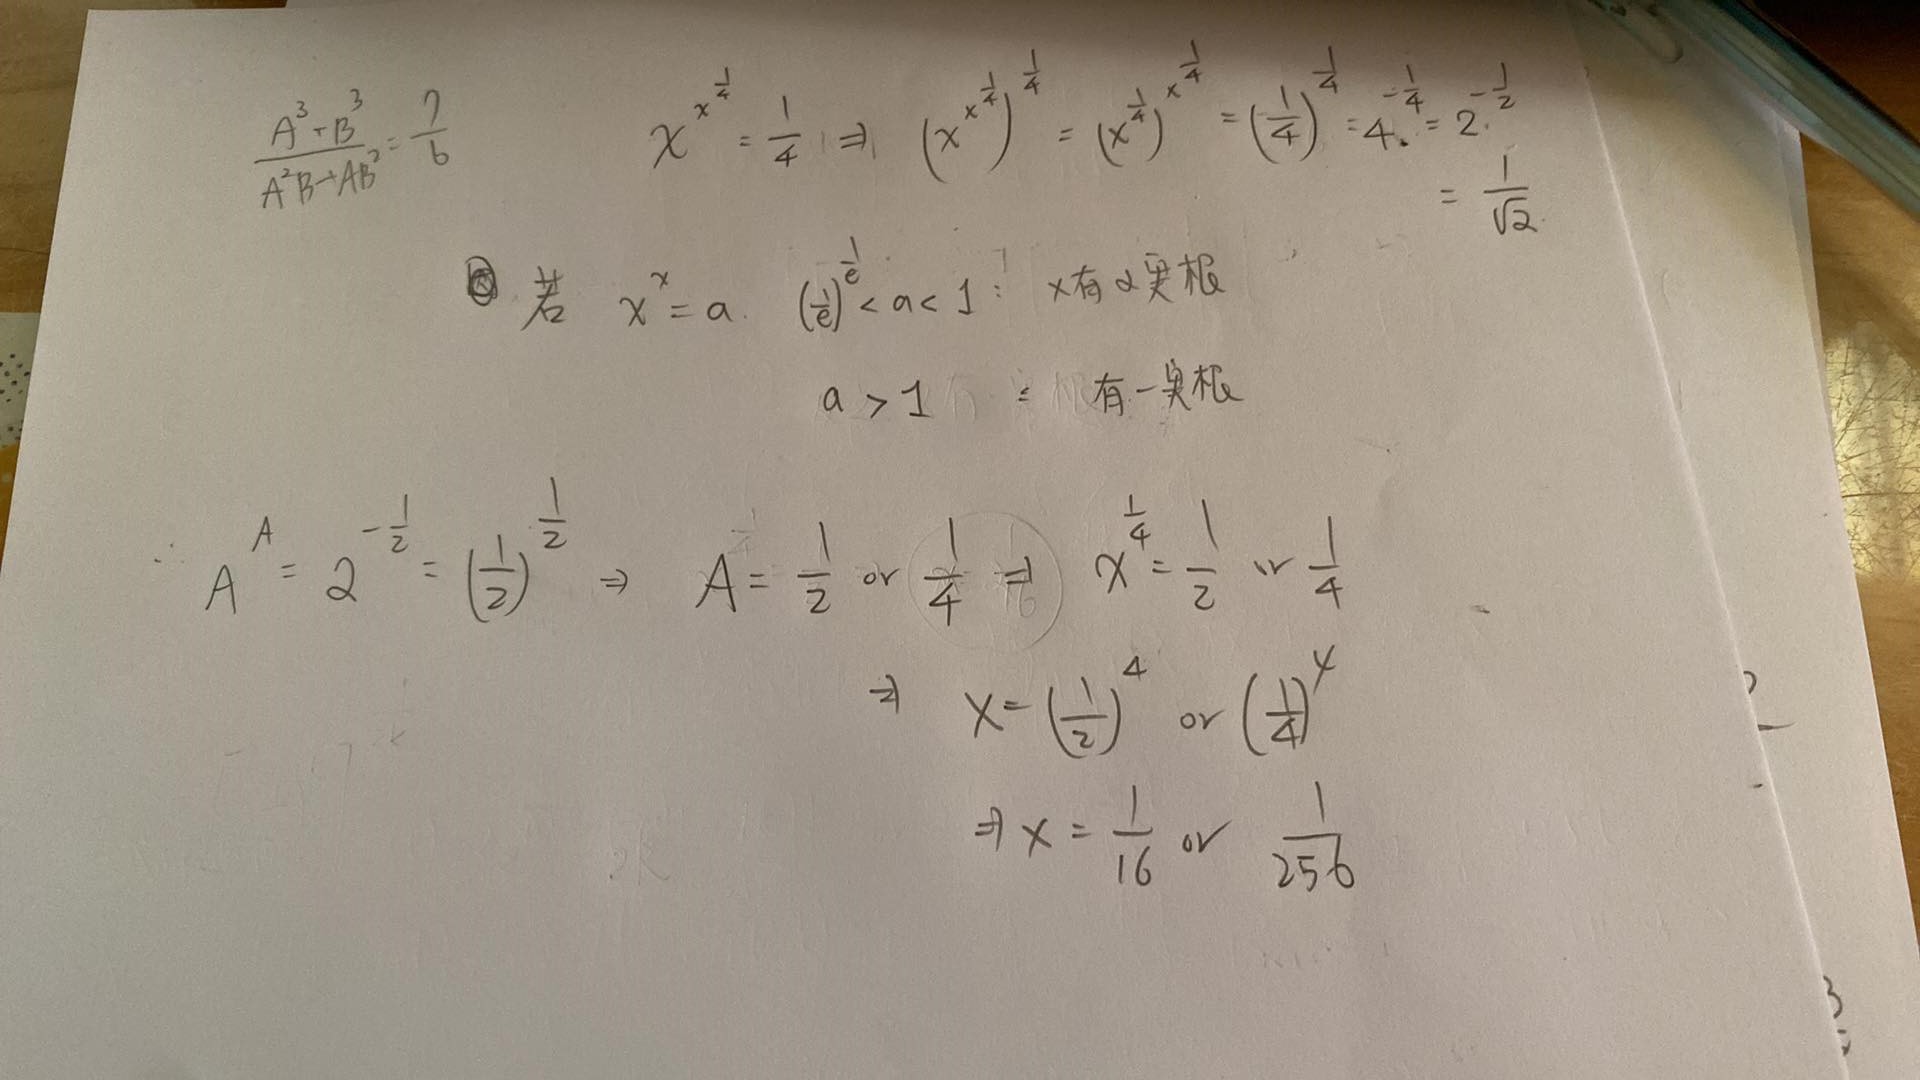 A³+B³ / A²B+AB² = 7/6
x^x^(1/4) = 1/4 ⇒ (x^x^(1/4))^(1/4) = (x^(1/4))^x^(1/4) = (1/4)^(1/4) = 4^(-1/4) = 2^(-1/2)
= 1/√2
若 x^x = a. (1/e)^(1/e) < a < 1 : x有2实根
a > 1 : 有一实根
∴ A^A = 2^(-1/2) = (1/2)^(1/2) ⇒ A = 1/2 or 1/4 ⇒ x^(1/4) = 1/2 or 1/4
⇒ x = (1/2)^4 or (1/4)^4
⇒ x = 1/16 or 1/256